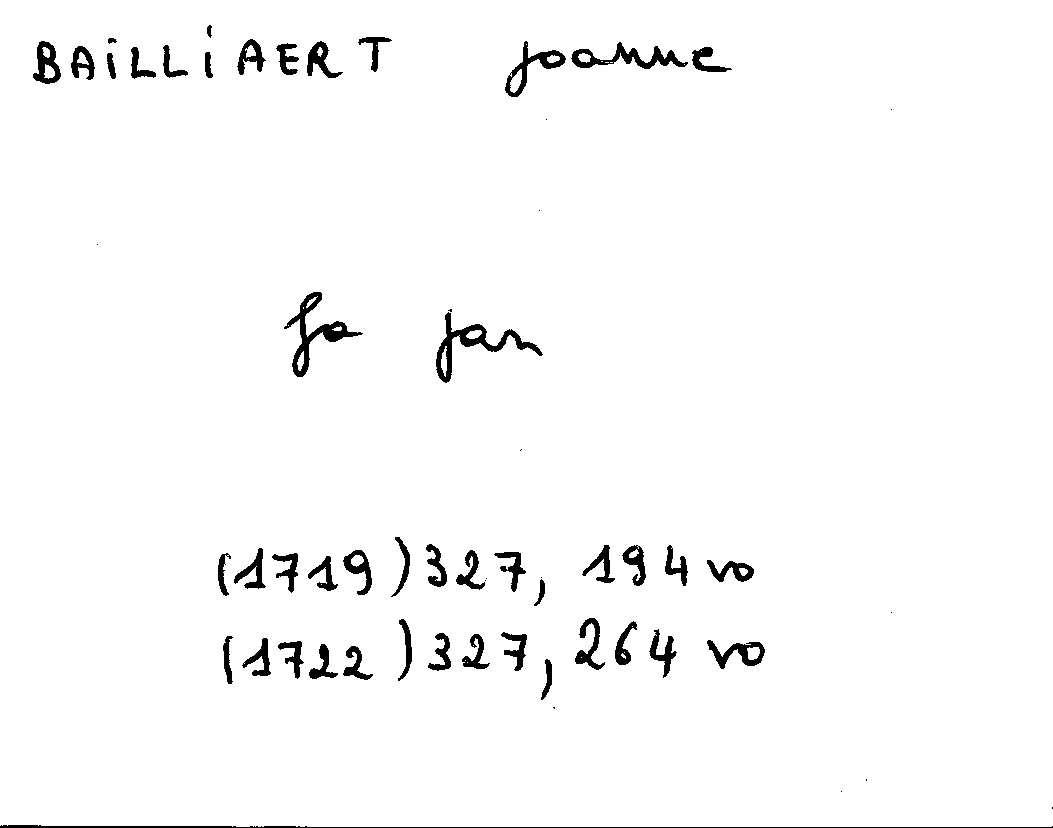 BAiLLiAERT Joanne
fa Jan
(1719) 327, 194 vo
(1722) 327, 264 vo